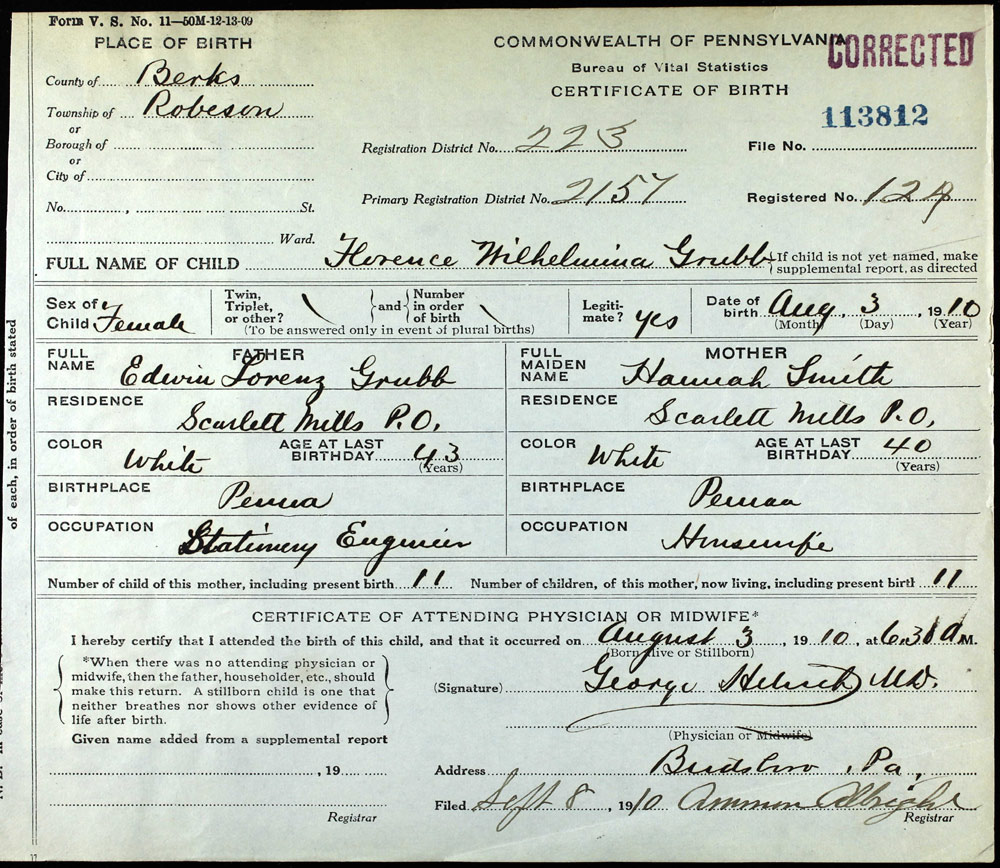 Form V. S. No. 11—50M-12-13-09
PLACE OF BIRTH
County of Berks
Township of Robeson
or
Borough of
or
City of
No. , St.
Ward.
COMMONWEALTH OF PENNSYLVANIA
CORRECTED
Bureau of Vital Statistics
CERTIFICATE OF BIRTH
113812
Registration District No. 223
File No.
Primary Registration District No. 2157
Registered No. 124
FULL NAME OF CHILD Florence Wilhelmina Grubb
If child is not yet named, make
supplemental report, as directed
Sex of
Child Female
Twin,
Triplet,
or other?
and
Number
in order
of birth
(To be answered only in event of plural births)
Legiti-
mate? yes
Date of
birth Aug 3, 1910
(Month) (Day) (Year)
FATHER
FULL
NAME Edwin Lorenz Grubb
RESIDENCE
Scarlett Mills P.O.
COLOR White
AGE AT LAST
BIRTHDAY 43
(Years)
BIRTHPLACE
Penna
OCCUPATION
Stationery Engineer
MOTHER
FULL
MAIDEN
NAME Hannah Smith
RESIDENCE
Scarlett Mills P.O.
COLOR White
AGE AT LAST
BIRTHDAY 40
(Years)
BIRTHPLACE
Pennaa
OCCUPATION
Housewife
Number of child of this mother, including present birth 11
Number of children, of this mother, now living, including present birth 11
CERTIFICATE OF ATTENDING PHYSICIAN OR MIDWIFE*
I hereby certify that I attended the birth of this child, and that it occurred on August 3, 1910, at 6.30 a M.
(Born alive or Stillborn)
*When there was no attending physician or
midwife, then the father, householder, etc., should
make this return. A stillborn child is one that
neither breathes nor shows other evidence of
life after birth.
(Signature) George MD.
(Physician or Midwife)
Given name added from a supplemental report
, 19
Registrar
Address Birdsboro, Pa,
Filed Sept 8, 1910 Ammon Albright
Registrar
of each, in order of birth stated